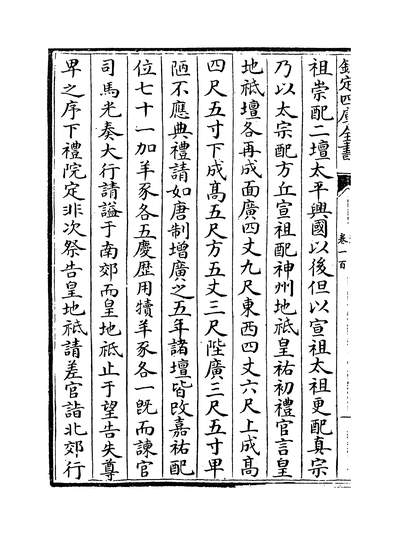 欽定四庫全書
卷一百
祖崇配二壇太平興國以後但以宣祖太祖更配真宗
乃以太宗配方丘宣祖配神州地祇皇祐初禮官言皇
地祇壇各再成面廣四丈九尺東西四丈六尺上成高
四尺五寸下成高五尺方五丈三尺陛廣三尺五寸卑
陋不應典禮請如唐制增廣之五年諸壇皆改嘉祐配
位七十一加羊豕各五慶歴用犢羊豕各一既而諫官
司馬光奏大行請謚于南郊而皇地祇止于望告失尊
卑之序下禮院定非次祭告皇地祇請差官詣北郊行